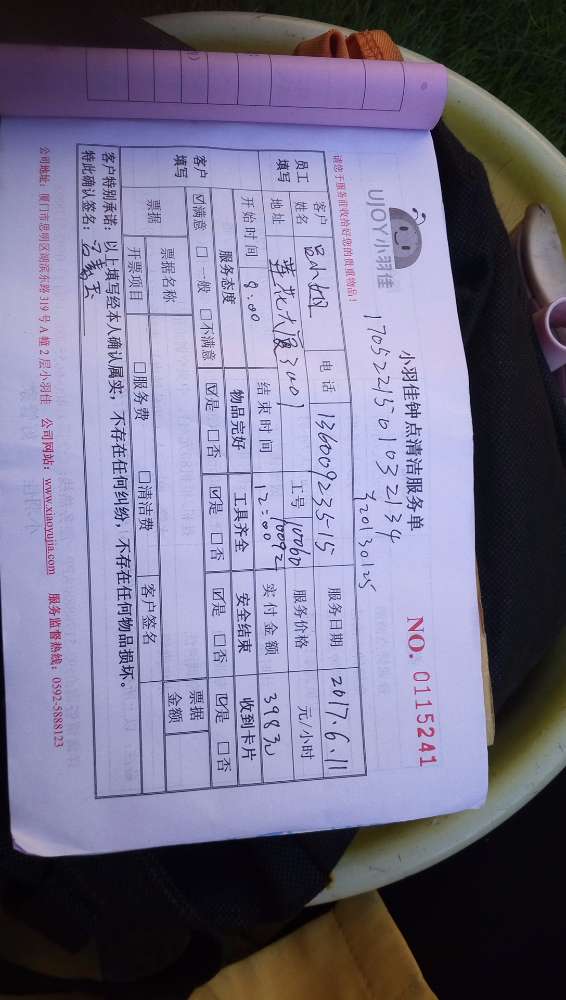 UJOY小羽佳
小羽佳钟点清洁服务单
NO. 0115241
1705221501032134
请您于服务前收拾好您的贵重物品!
员工填写
客户姓名
吕小姐
电话
13600923515
服务日期
2017.6.11
地址
莲花大厦3001
工号
服务价格
元/小时
开始时间
9:00
结束时间
12:00
实付金额
398元
客户填写
服务态度
物品完好
工具齐全
安全结束
收到卡片
☑满意 □一般 □不满意
☑是 □否
☑是 □否
☑是 □否
☑是 □否
票据
票据名称
客户签名
票据金额
开票项目
□服务费 □清洁费
客户特别承诺:以上填写经本人确认属实,不存在任何纠纷,不存在任何物品损坏。
特此确认签名:
公司地址:厦门市思明区湖滨东路319号A幢2层小羽佳 公司网站:www.xiaoyujia.com 服务监督热线:0592-5888123